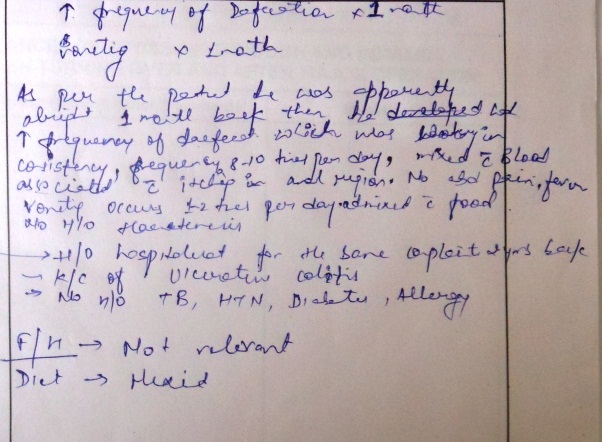 ↑ frequency of Defecation x 1 month
Vomiting x 1 month
As per the patient he was apparently
alright 1 month back then he developed
↑ frequency of defecation which was watery in
consistency, frequency 8-10 times per day, mixed c̄ Blood
associated c̄ itching in anal region. No abd pain, fever
Vomiting occurs 1-2 times per day. admixed c̄ food.
No H/O Haematemesis
→ H/O hospitalised for the same complaint 2 yrs back
- K/C of Ulcerative colitis
→ No H/O TB, HTN, Diabetes, Allergy
F/H → Not relevant
Diet → Mixed